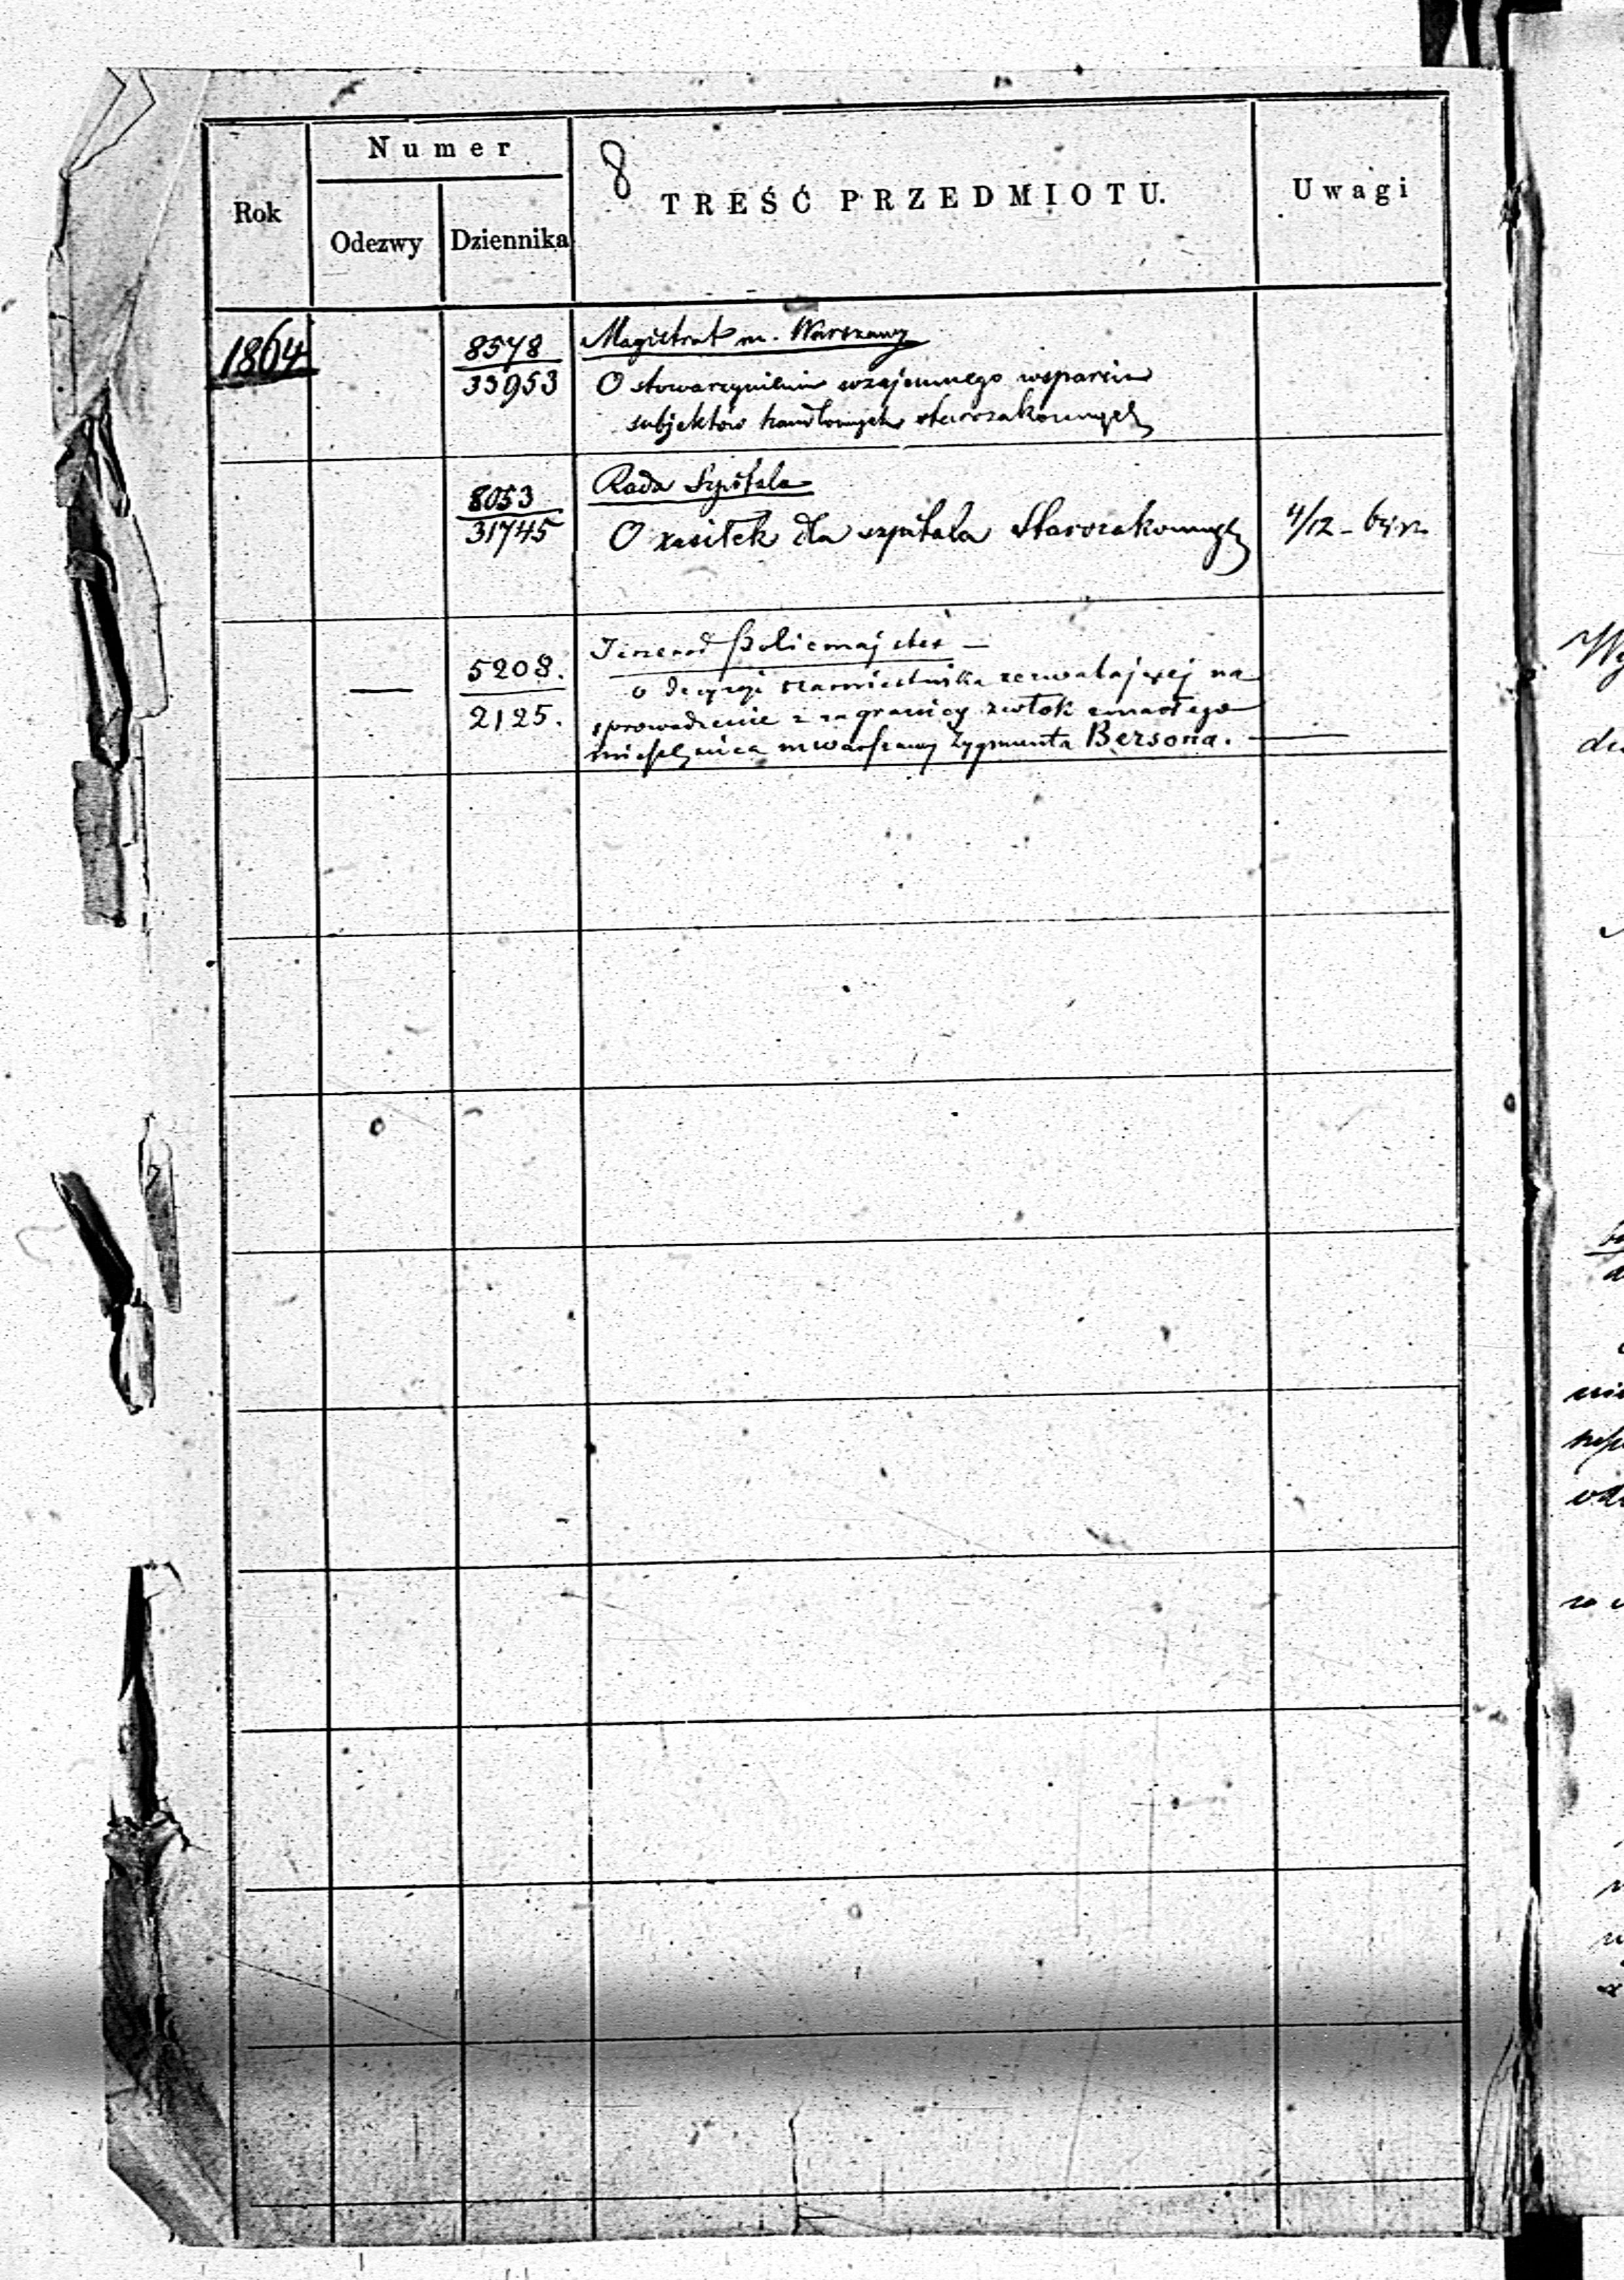 Numer
8
Rok
Odezwy
Dziennika
TREŚĆ PRZEDMIOTU.
Uwagi
1864
8578
33953
Magistrat m. Warszawy
O stowarzyszeniu wzajemnego wsparcia
subjektów handlowych starozakonnych
8053
31745
Rada Szpitala
O zasiłek dla szpitala Starozakonnych
4/12 -
—
5208.
2125.
Policmajster —
o decyzyi zezwalającej na
sprowadzenie z zagranicy zwłok zmarłego
mieszkańca m Warszawy Zygmunta Bersona. —